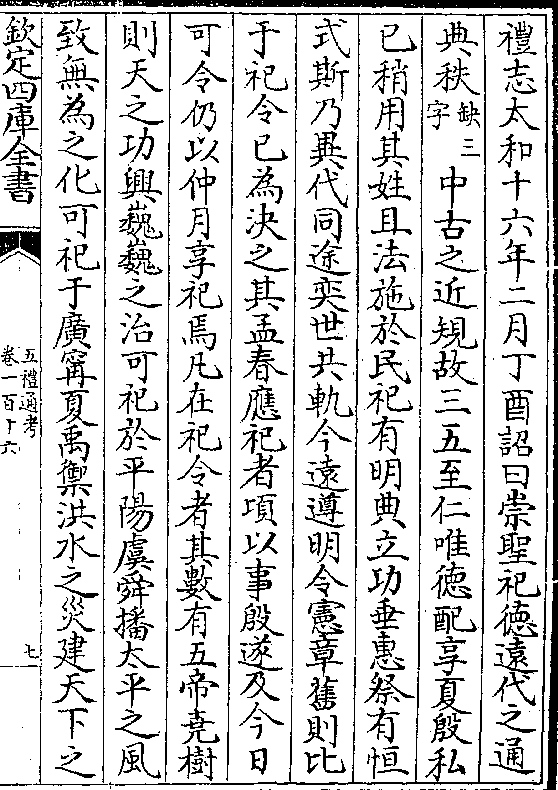 禮志太和十六年二月丁酉詔曰崇聖祀徳遠代之通
典秩缺三字中古之近規故三五至仁唯徳配享夏殷私
已稍用其姓且法施於民祀有明典立功垂惠祭有恒
式斯乃異代同途奕世共軌今遠遵明令憲章舊則比
于祀令已為決之其孟春應祀者頃以事殷遂及今日
可令仍以仲月享祀焉凡在祀令者其數有五帝堯樹
則天之功興巍巍之治可祀於平陽虞舜播太平之風
致無為之化可祀于廣寗夏禹禦洪水之災建天下之
欽定四庫全書
五禮通考
卷一百十六
七